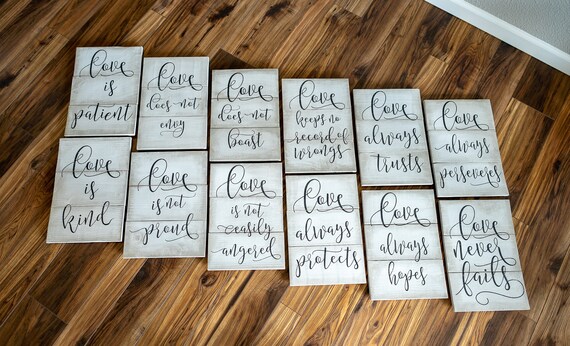 Love
is
patient
Love
does not
envy
Love
does not
boast
Love
keeps no
record of
wrongs
Love
always
trusts
Love
always
perseveres
Love
is
kind
Love
is not
proud
Love
is not
easily
angered
Love
always
protects
Love
always
hopes
Love
never
fails